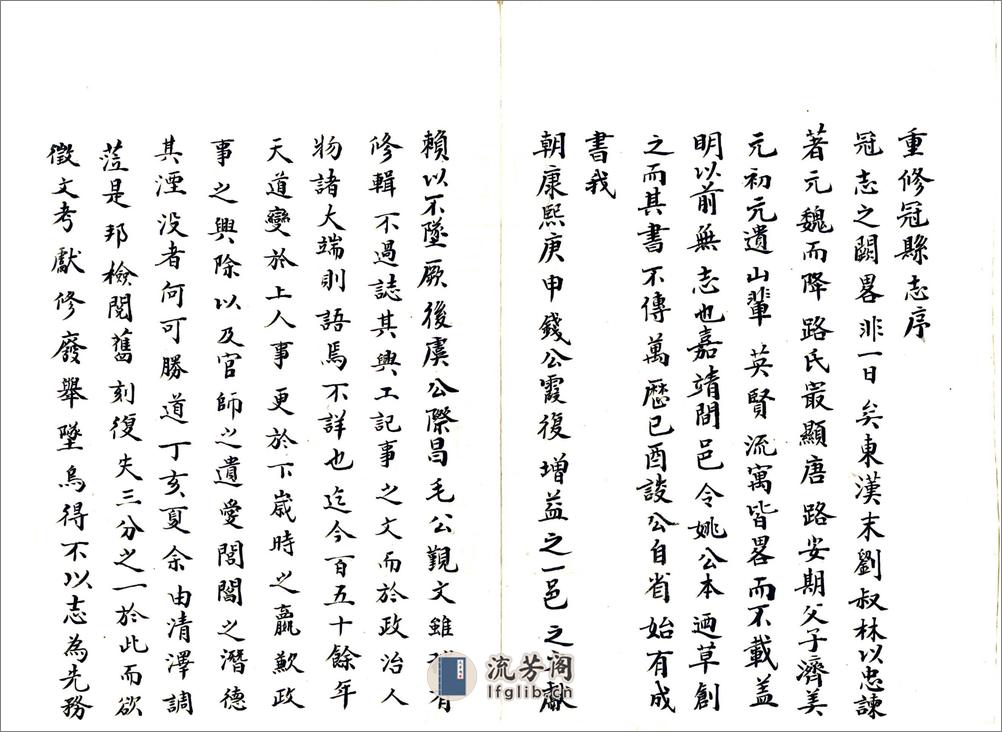 重修冠縣志序
冠志之闕畧非一日矣東漢末劉叔林以忠諫
著元魏而降路氏㝡顯唐路安期父子濟美
元初元遺山輩英賢流寓皆畧而不載蓋
明以前無志也嘉靖間邑令姚公本迺草創
之而其書不傳萬歷已酉談公自省始有成
書我
朝康熙庚申錢公霞復增益之一邑之獻
賴以不墜厥後虞公際昌毛公覲文雖有
修輯不過誌其興工記事之文而於政治人
物諸大端則語焉不詳也迄今百五十餘年
天道變於上人事更於下歳時之贏歉政
事之興除以及官師之遺愛閭閻之潛德
其湮没者何可勝道丁亥夏余由清澤調
蒞是邦檢閱舊刻復失三分之一於此而欲
徵文考獻修廢舉墜烏得不以志為先務
流芳阁
lfglib.cn